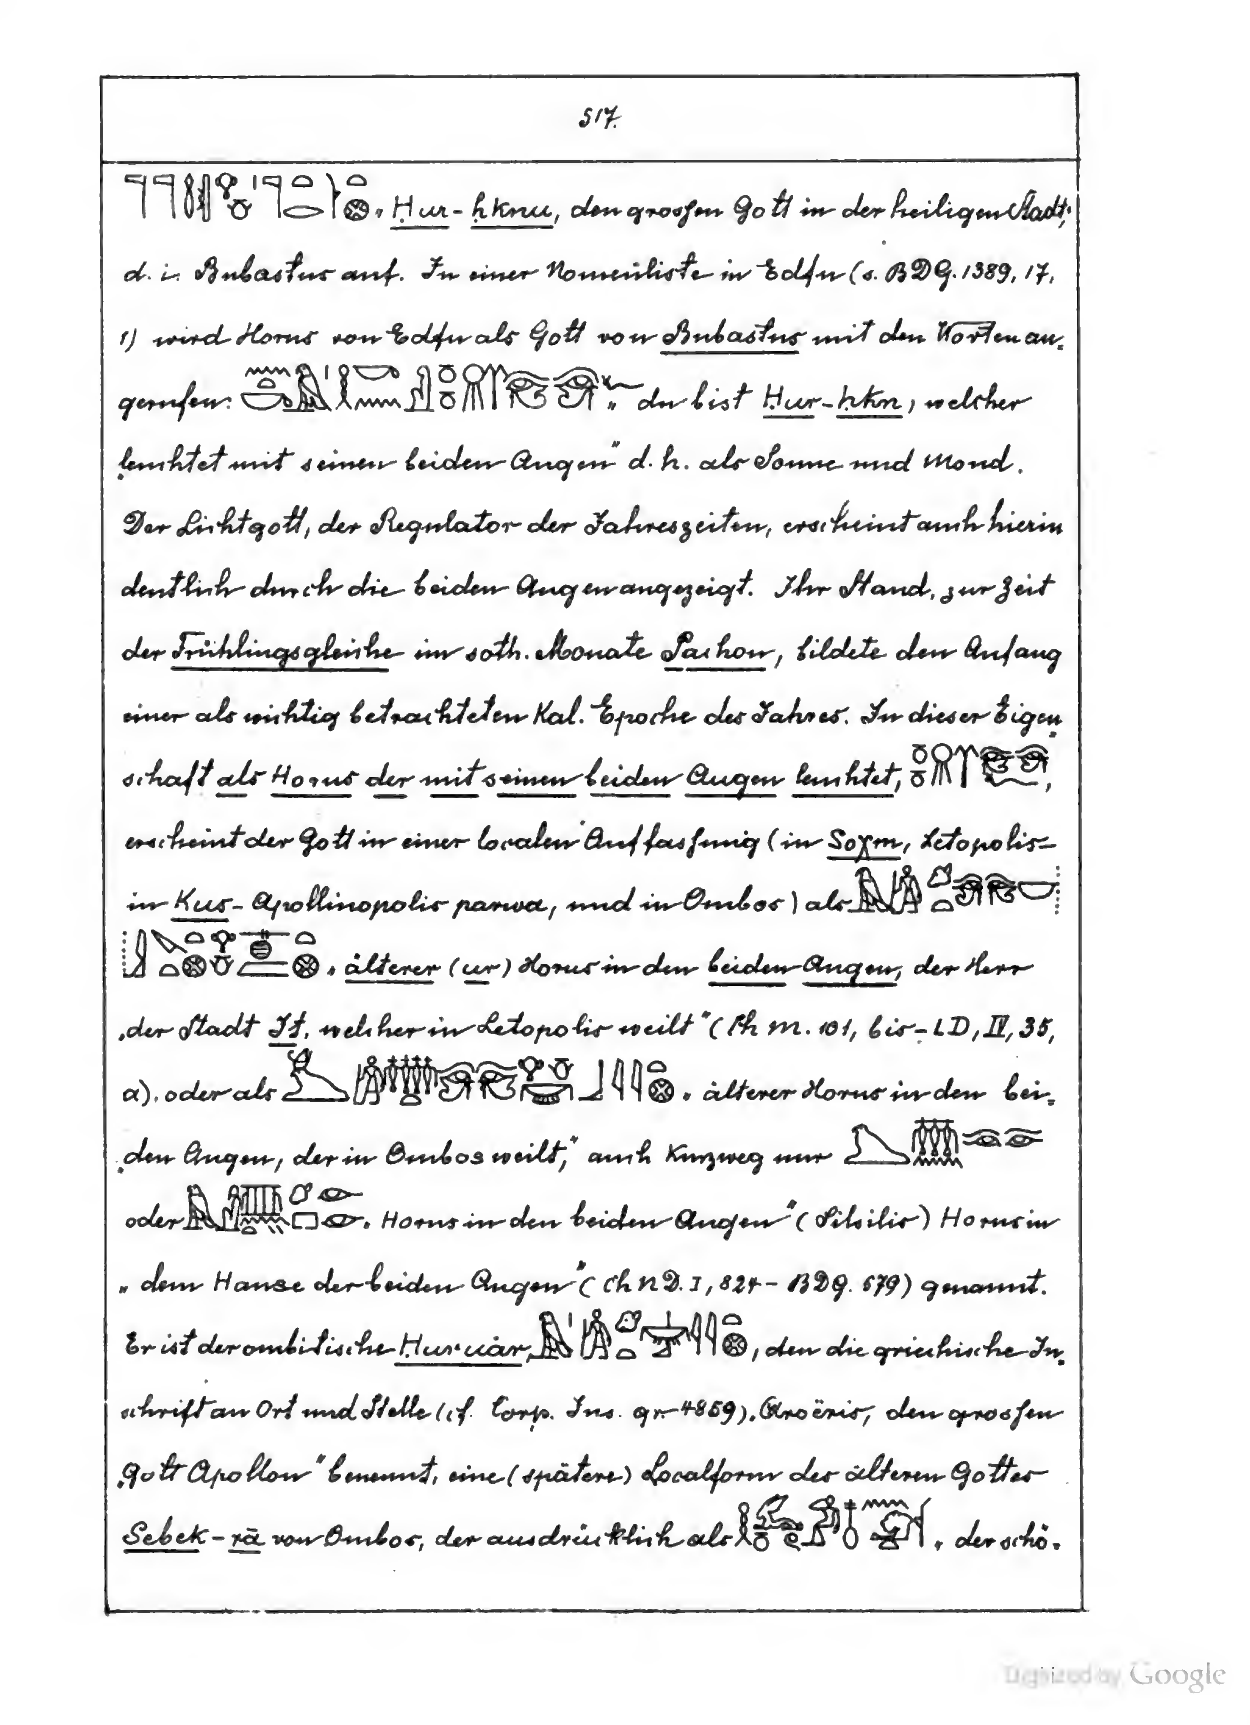 517.
„Ḥur-ḥknu, den grossen Gott in der heiligen Stadt,“
d. i. Bubastus auf. In einer Nomenliste in Edfu (s. BDG. 1389, 17,
1) wird Horus von Edfu als Gott von Bubastus mit den Worten an-
gerufen: „du bist Ḥur-ḥkn, welcher
leuchtet mit seinen beiden Augen“ d. h. als Sonne und Mond.
Der Lichtgott, der Regulator der Jahreszeiten, erscheint auch hierin
deutlich durch die beiden Augen angezeigt. Ihr Stand, zur Zeit
der Frühlingsgleiche im soth. Monate Pachon, bildete den Anfang
einer als wichtig betrachteten Kal. Epoche des Jahres. In dieser Eigen-
schaft als Horus der mit seinen beiden Augen leuchtet,
erscheint der Gott in einer localen Auffassung (in Soχm, Letopolis –
in Kus – Apollinopolis parva, und in Ombos) als
„älterer (ur) Horus in den beiden Augen, der Herr
„der Stadt Št, welcher in Letopolis weilt“ (Ch M. 101, bis – LD, IV, 35,
a), oder als „älterer Horus in den bei-
„den Augen, der in Ombos weilt,“ auch kurzweg nur
oder „Horus in den beiden Augen“ (Silsilis) Horus in
„dem Hause der beiden Augen“ (Ch ND. I, 824 – BDG. 679) genannt.
Er ist der ombitische Hur-uâr, den die griechische In-
schrift an Ort und Stelle (cf. Corp. Ins. gr. 4859) „Aroëris, den grossen
„Gott Apollon“ benennt, eine (spätere) Localform des älteren Gottes
Sebek-rā von Ombos, der ausdrücklich als „der schö-
Digitized by Google